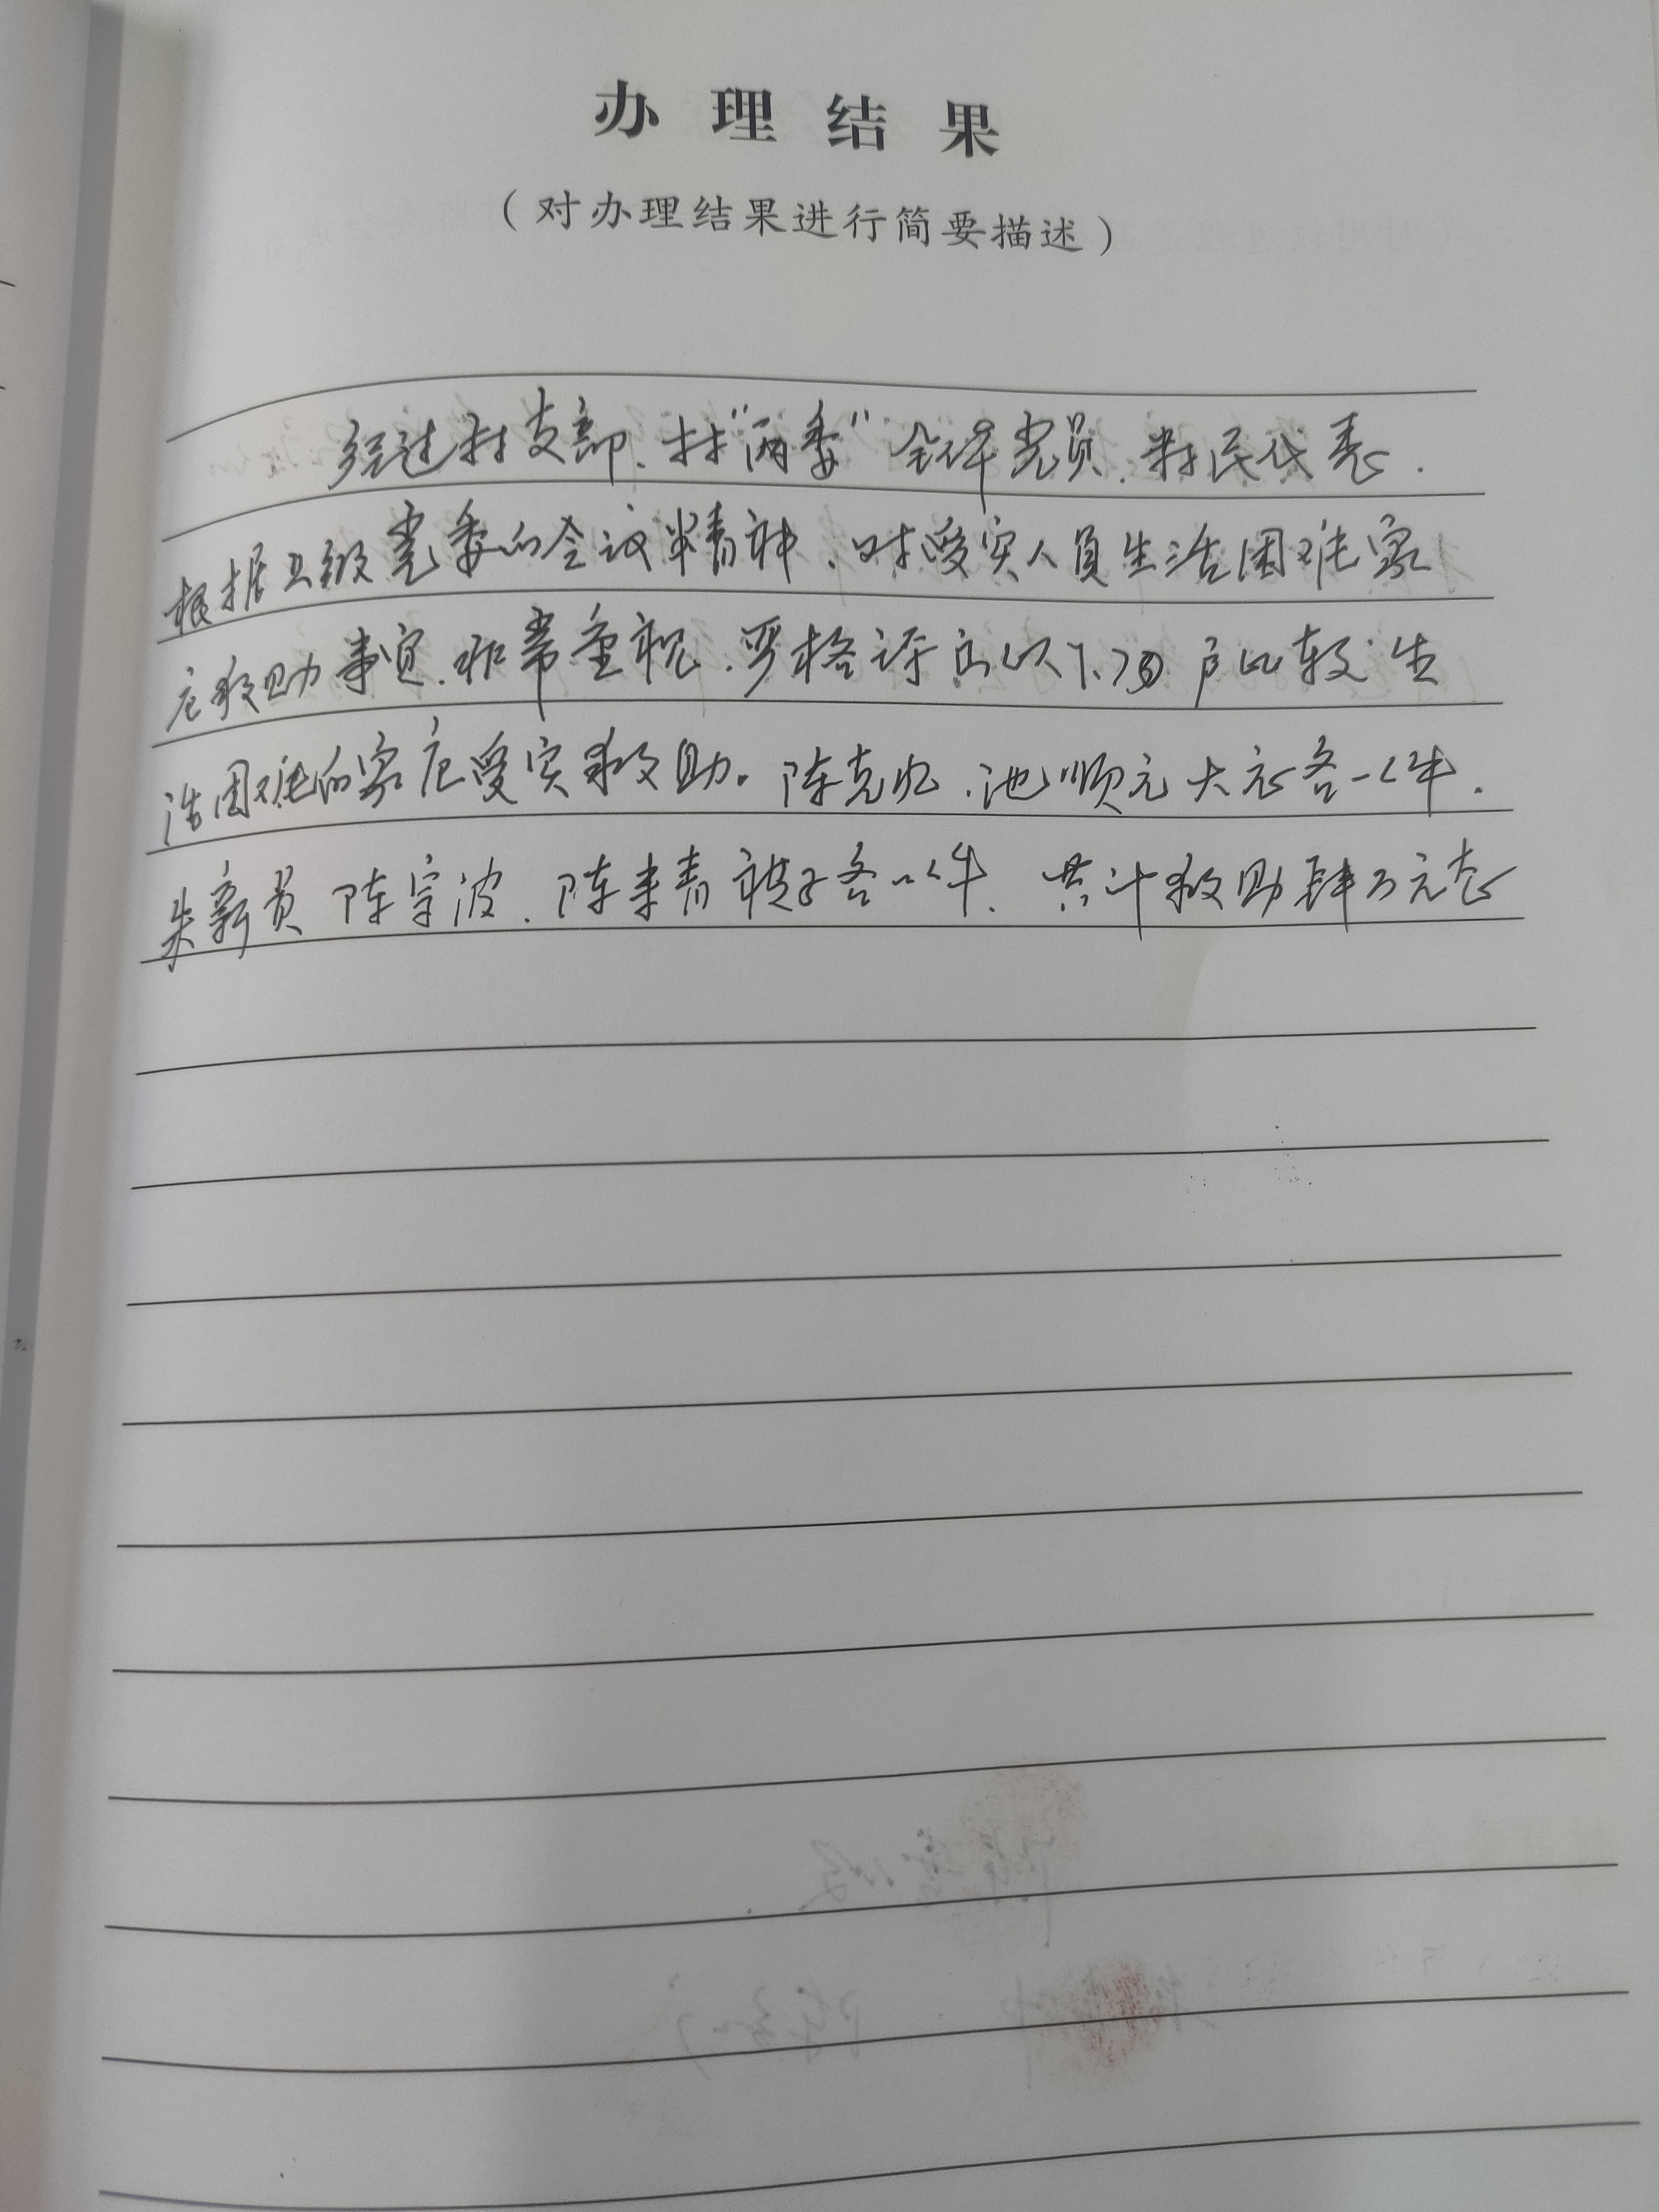 办理结果
（对办理结果进行简要描述）
经过村支部、村“两委”全体党员、村民代表、
根据上级党委的会议精神、对受灾人员生活困难家
庭救助事宜、非常重视、严格评出以下 户比较生
活困难的家庭受灾救助。陈克 、池顺元大衣各一件、
朱新员 陈宗波、陈来青被子各一件、共计救助肆万元态